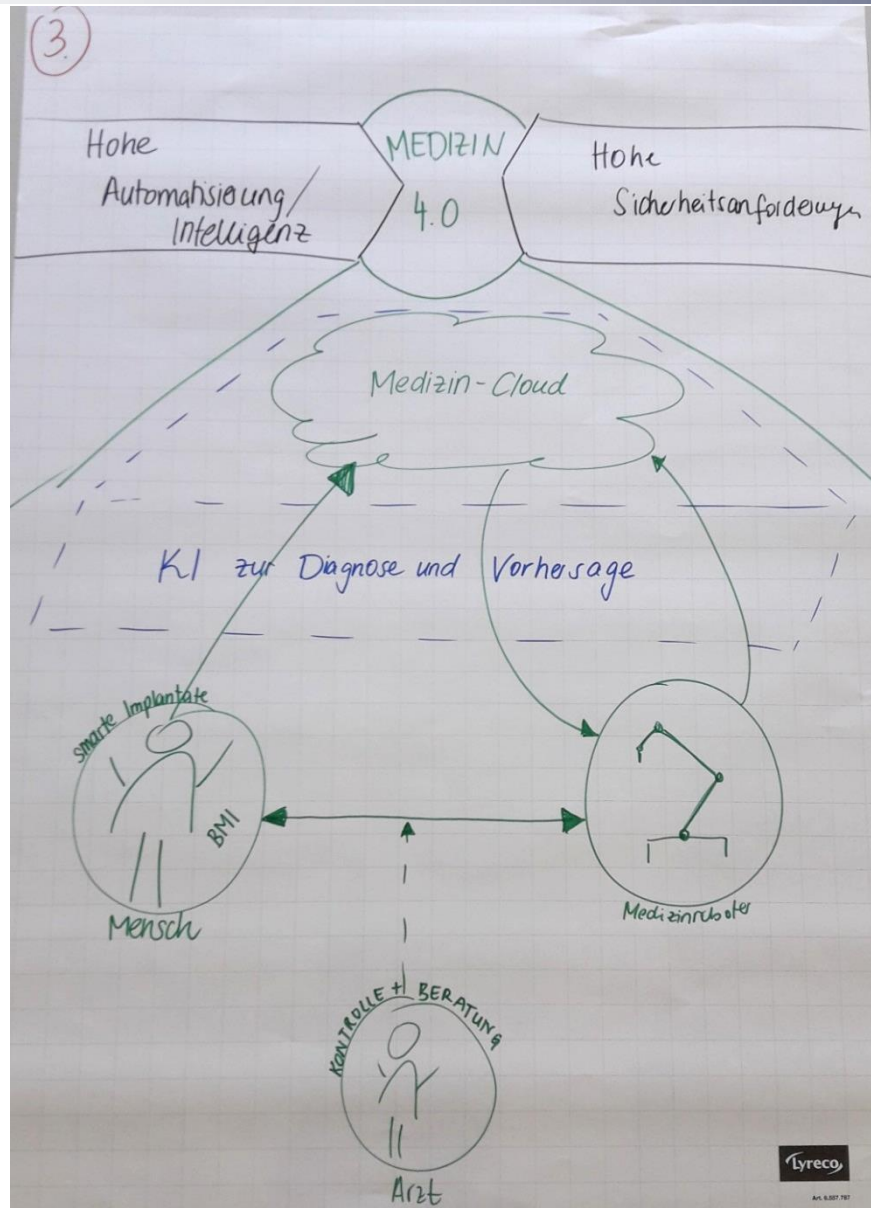 3.
MEDIZIN
4.0
Hohe
Automatisierung/
Intelligenz
Hohe
Sicherheitsanforderungen
Medizin-Cloud
KI zur Diagnose und Vorhersage
smarte Implantate
BMI
Mensch
Medizinroboter
KONTROLLE + BERATUNG
Arzt
Lyreco
Art. 6.887.787